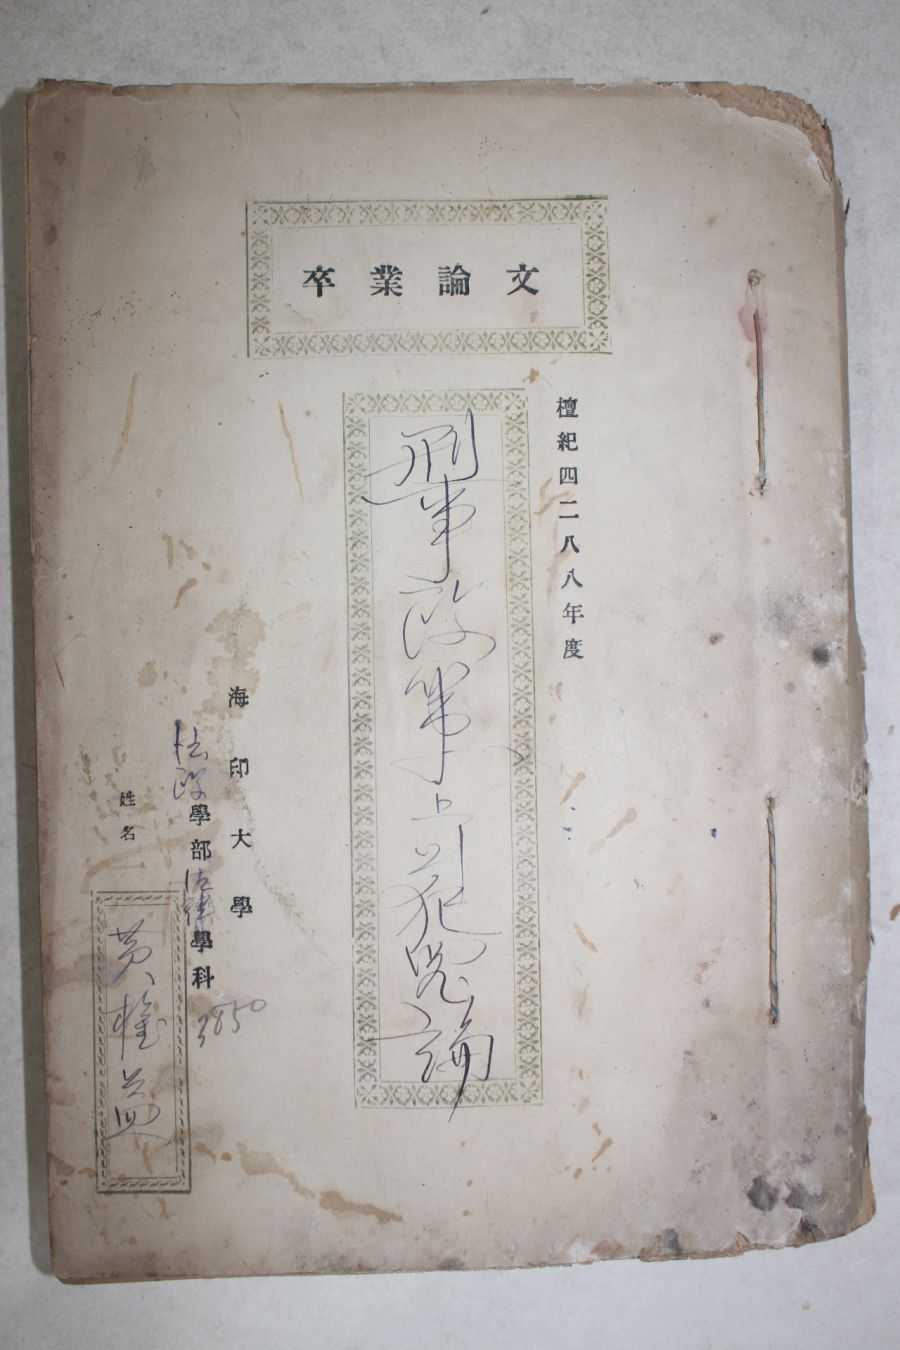 卒業論文
檀紀四二八八年度
刑事政策上의犯罪論
海印大學
法政學部法律學科
3850
姓名
黃權益